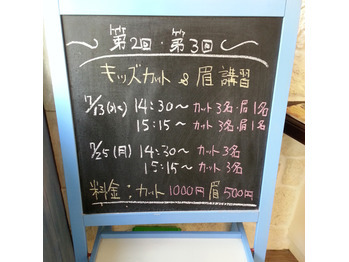 第2回・第3回
キッズカット & 眉 講習
7/13(水) 14:30～ カット3名・眉1名
15:15～ カット3名・眉1名
7/25(月) 14:30～ カット3名
15:15～ カット3名
料金：カット1000円 眉500円